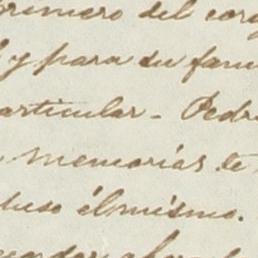 primero del cor
y para su fam
articular - Pedr
memorias te
buso él mismo.